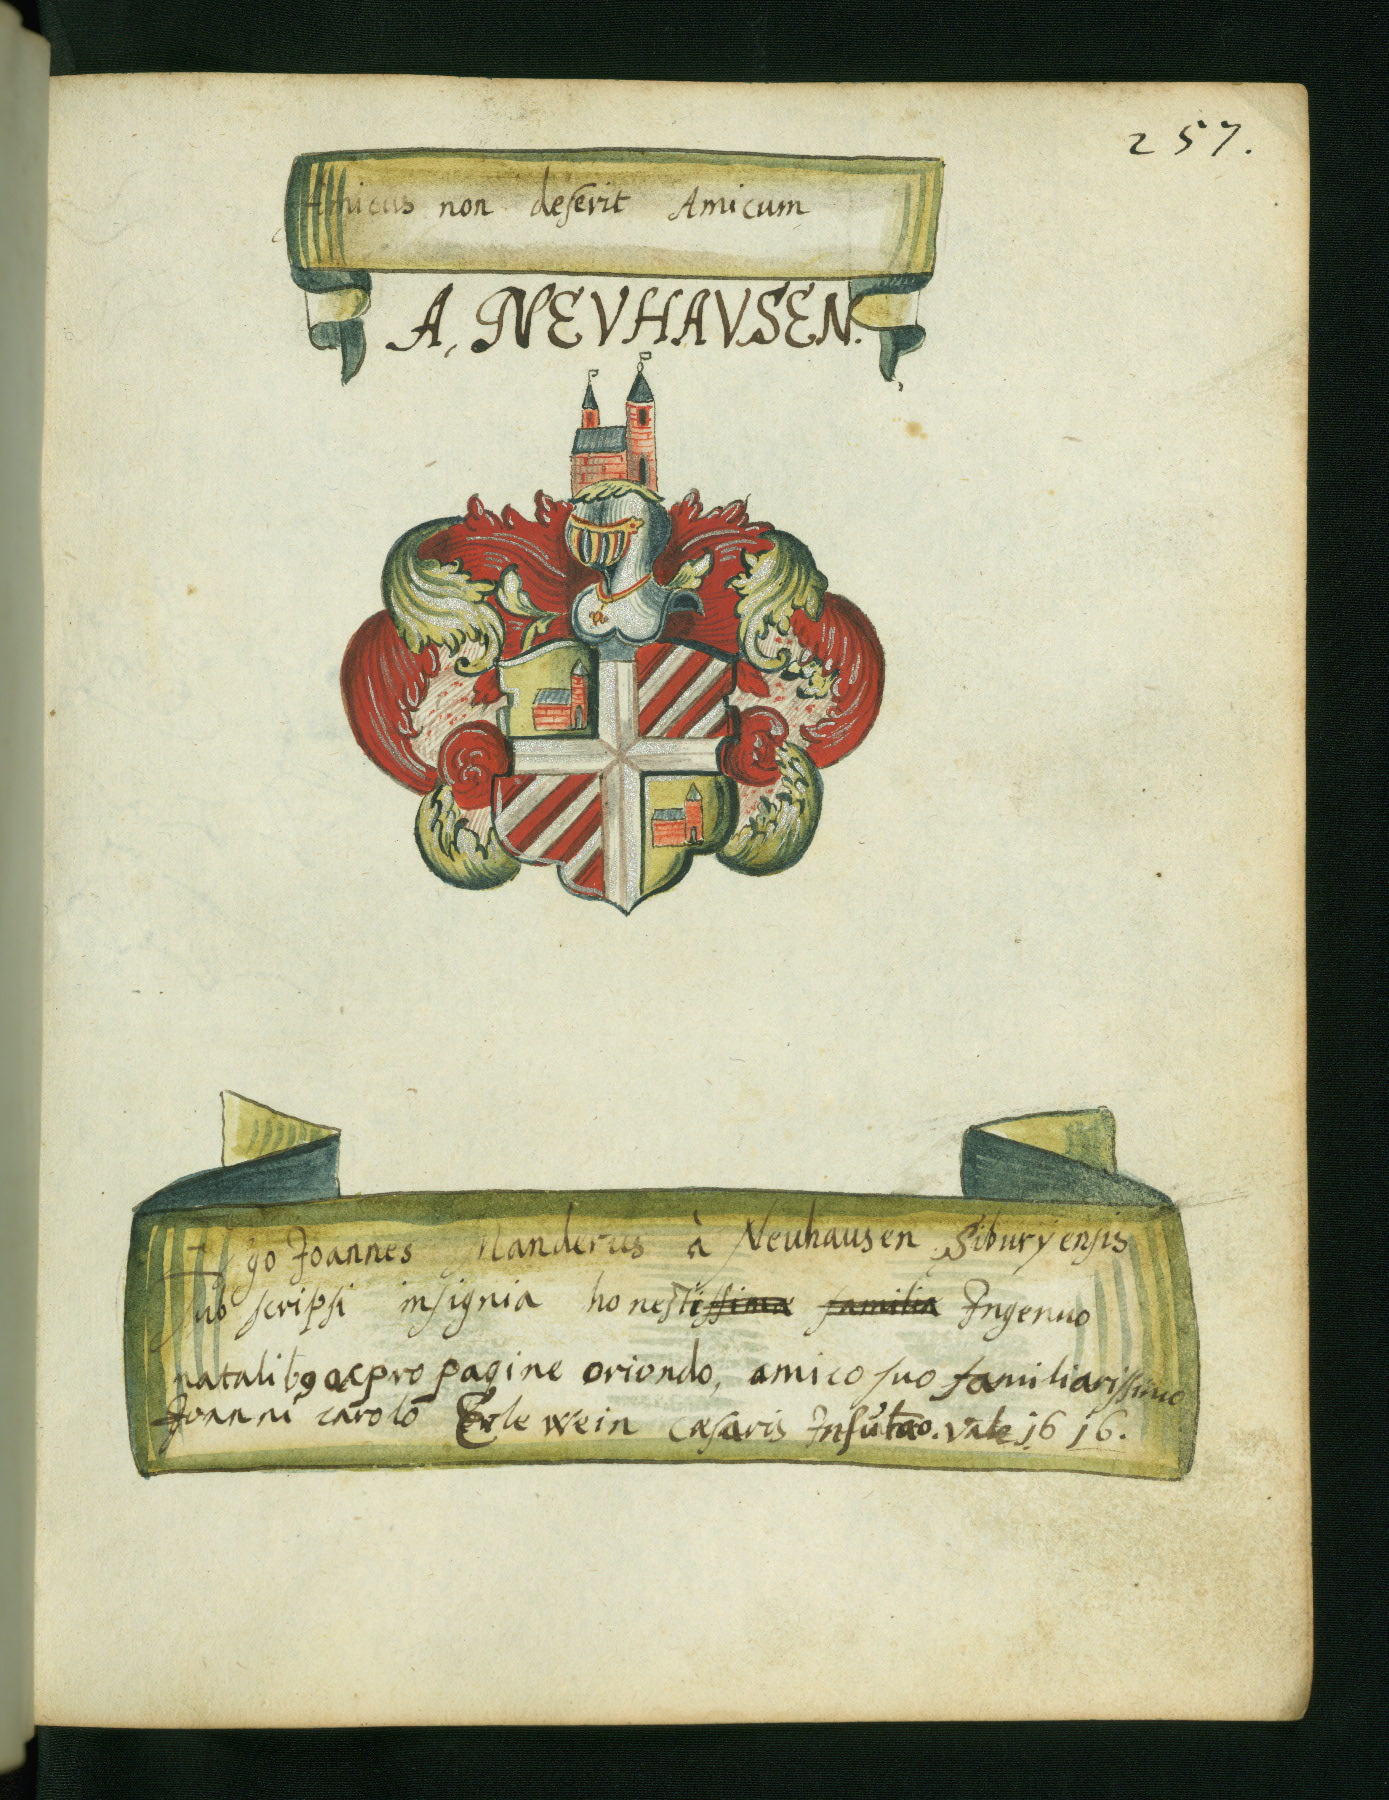 257.
Amicus non deserit Amicum
A, NEVHAVSEN.
Ego Joannes Manderus à Neuhausen Siburyensis
subscripsi insignia honestissimæ familiæ Ingenuo
natalibꝯ ac propagine oriondo, amico suo familiarissimo
Joanni carolo Erlewein cæsaris Vale 1616.